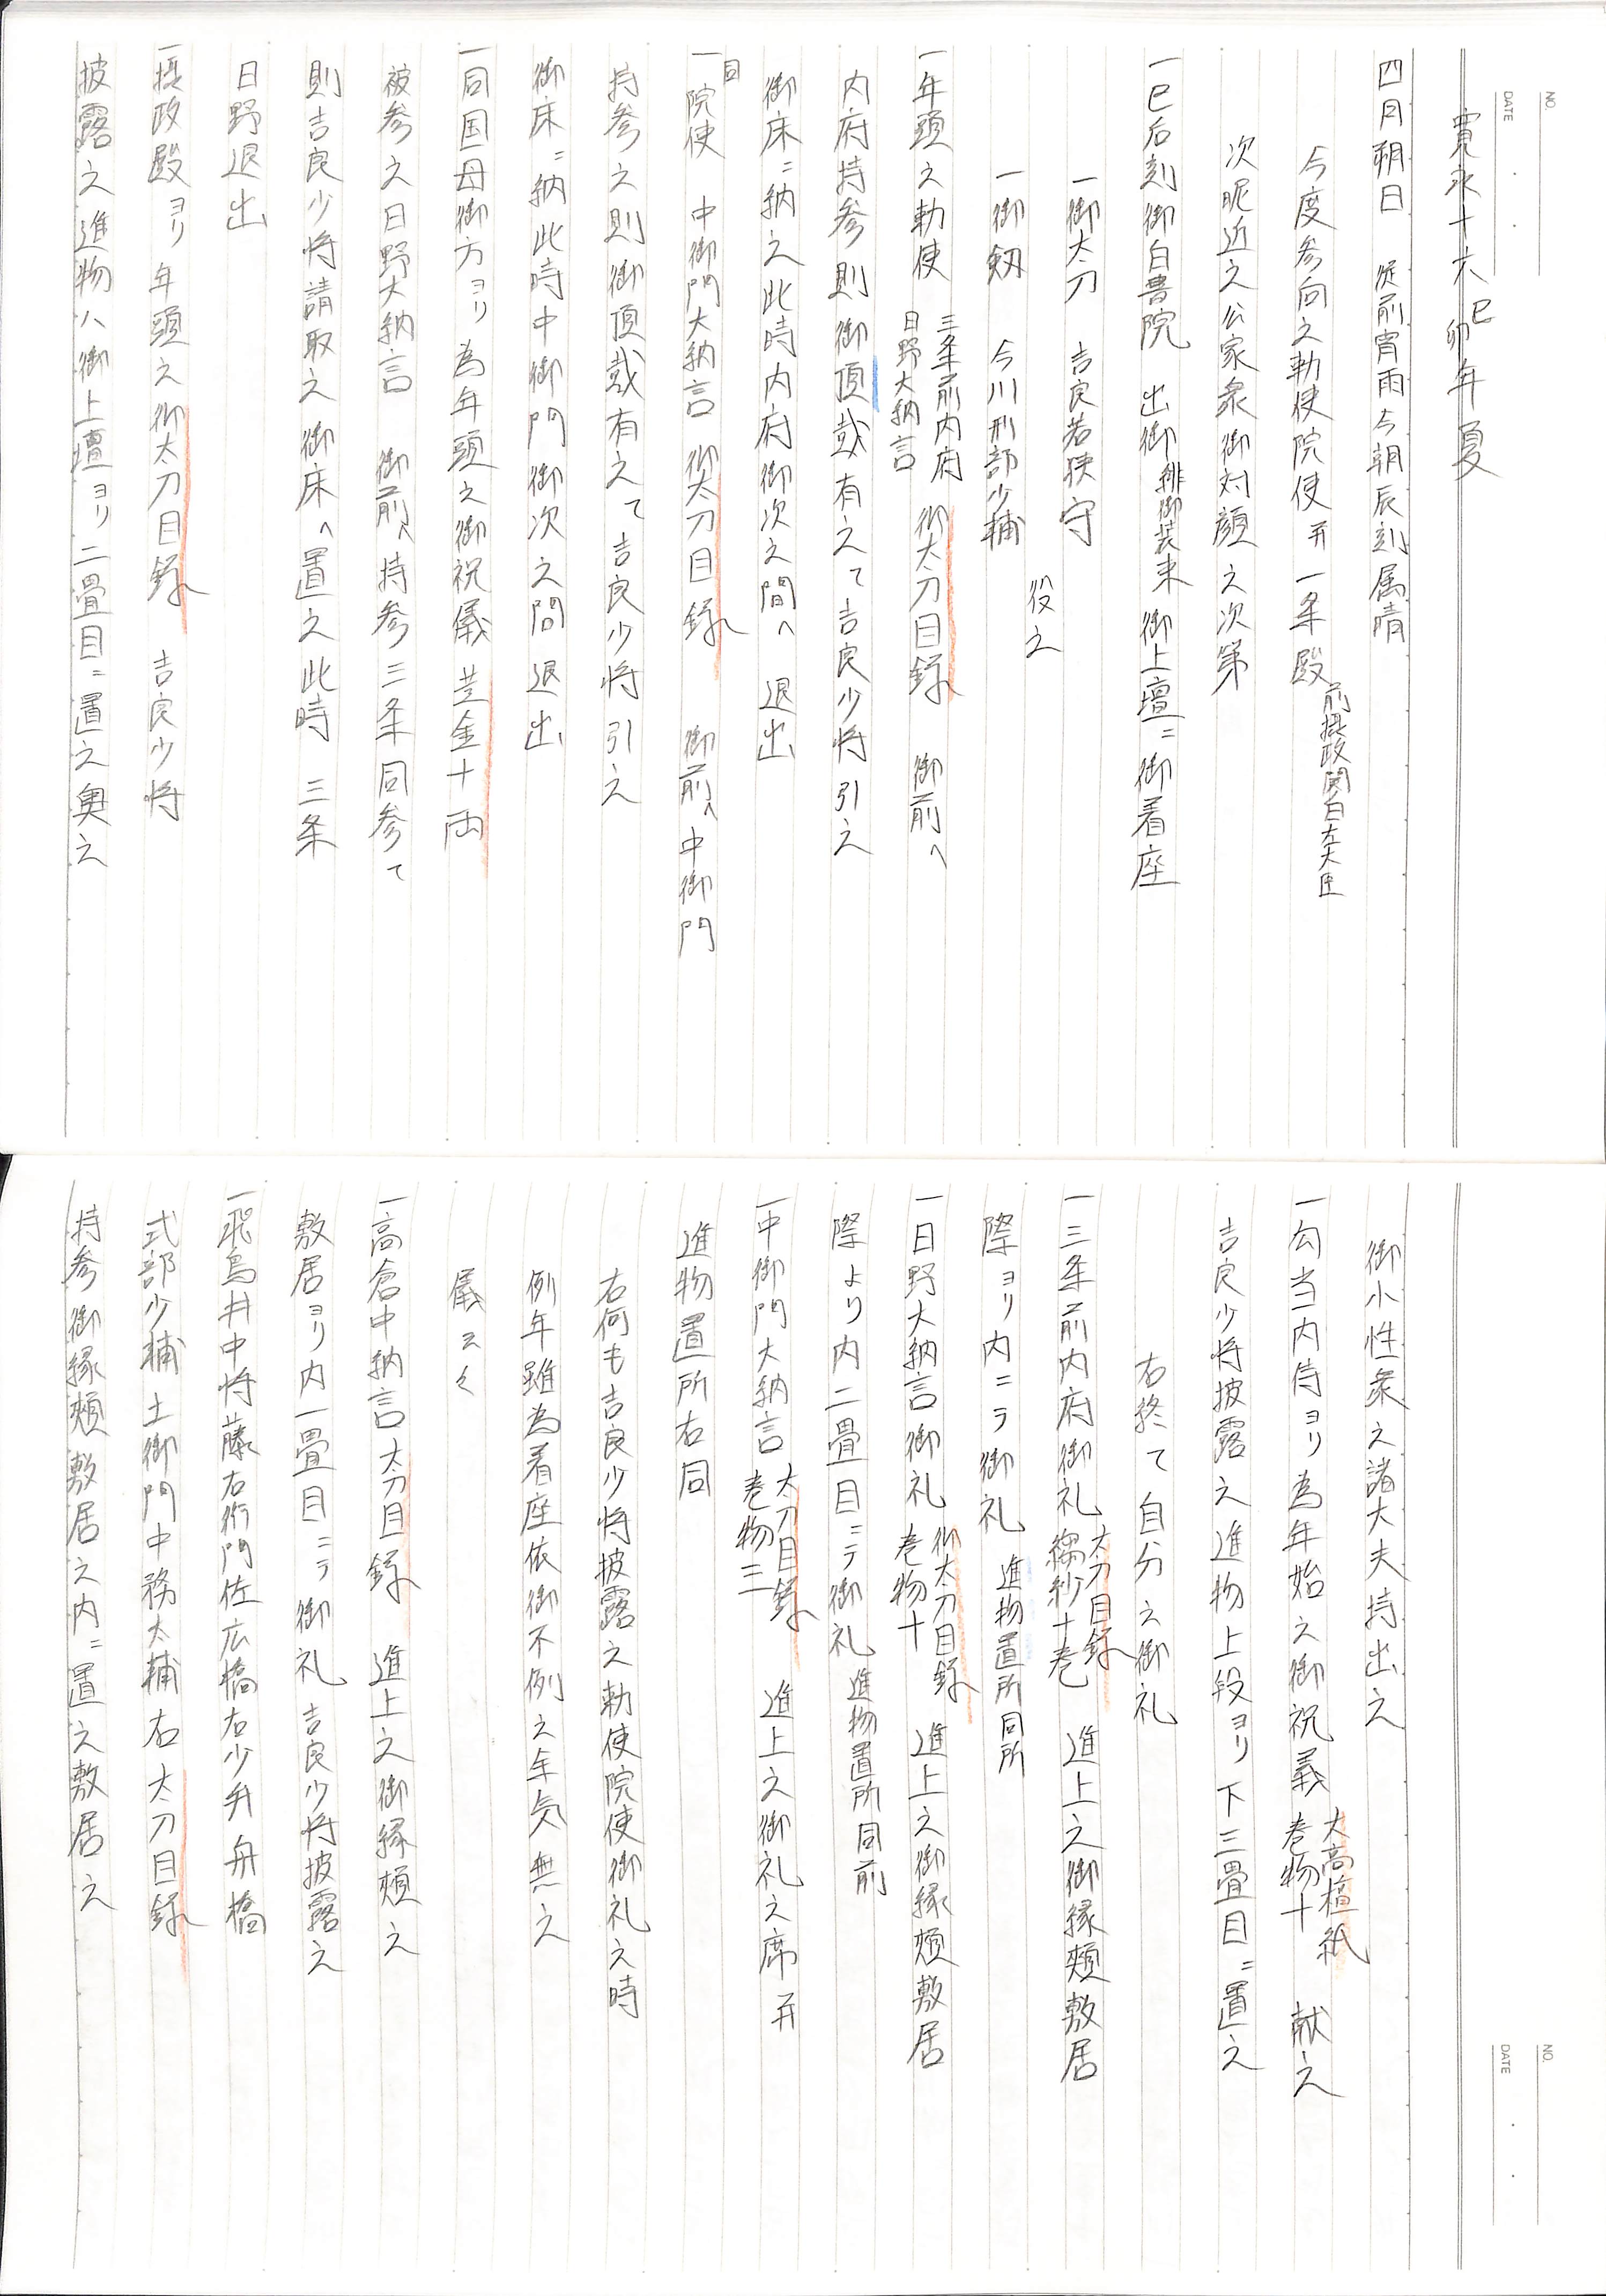 NO.
DATE
寛永十六己卯年夏
四月朔日 従前宵雨今朝辰刻属晴
今度参向之勅使院使并一条殿前摂政関白左大臣
次昵近之公家衆御対顔之次第
一巳后刻御白書院 出御 御装束 御上壇ニ御着座
一御太刀 吉良若狭守
役之
一御剱 今川刑部少輔
一年頭之勅使 三条前内府 日野大納言 御太刀目録 御前ヘ
内府持参則御頂戴有之て吉良少将引之
御床ニ納之此時内府御次之間ヘ退出
一同院使 中御門大納言 御太刀目録 御前ヘ中御門
持参之則御頂戴有之て吉良少将引之
御床ニ納此時中御門御次之間退出
一同国母御方ヨリ為年頭之御祝儀 黄金十両
被参之日野大納言 御前ヘ持参三条同参て
則吉良少将請取之御床ヘ置之此時 三条
日野退出
一摂政殿ヨリ年頭之御太刀目録 吉良少将
披露之進物ハ御上壇ヨリ二畳目ニ置之奥之
NO.
DATE
御小性衆之諸大夫持出之
一勾当内侍ヨリ為年始之御祝義 大高檀紙 巻物十 献之
吉良少将披露之進物上段ヨリ下三畳目ニ置之
右終て自分之御礼
一三条前内府御礼 太刀目録 縐紗十巻 進上之御縁頬敷居
際ヨリ内ニテ御礼 進物置所同所
一日野大納言御礼 御太刀目録 巻物十 進上之御縁頬敷居
際より内二畳目ニテ御礼 進物置所同前
一中御門大納言 太刀目録 巻物三 進上之御礼之席并
進物置所右同
右何も吉良少将披露之勅使院使御礼之時
例年雖為着座依御不例之年気無之
儀云々
一高倉中納言 太刀目録 進上之御縁頬之
敷居ヨリ内一畳目ニテ御礼 吉良少将披露之
一飛鳥井中将藤右衛門佐広橋右少弁舟橋
式部少輔土御門中務大輔右太刀目録
持参御縁頬敷居之内ニ置之敷居之